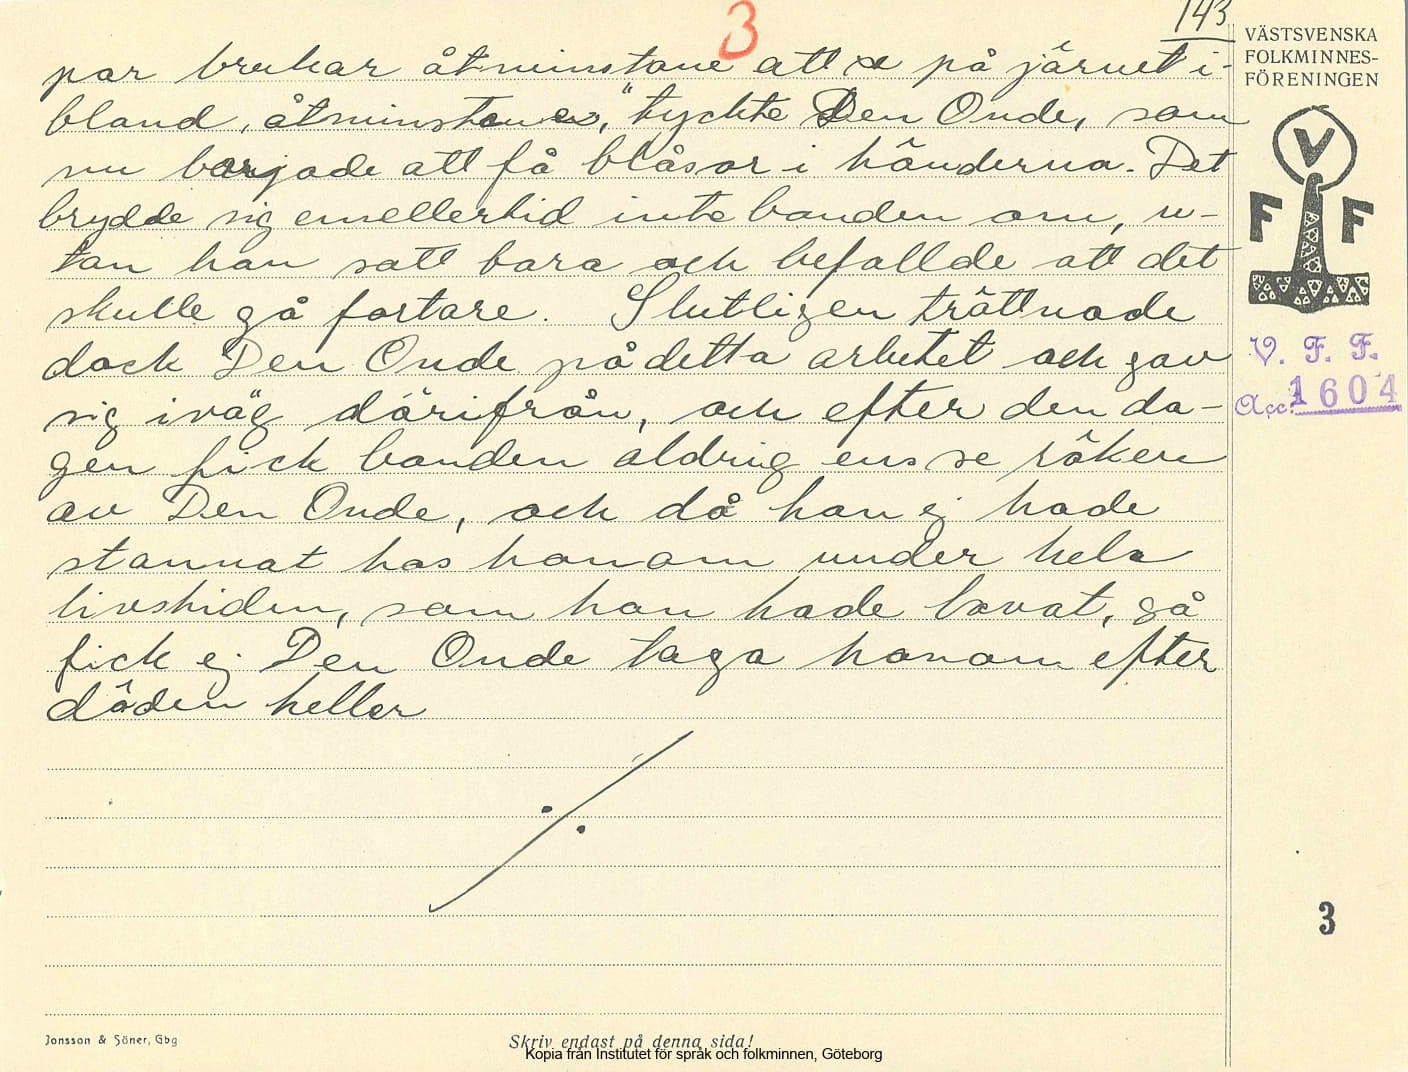 3
143
par brukar åtminstone att se på järnet i-
bland, åtminstone," tyckte Den Onde, som
nu började att få blåsor i händerna. Det
brydde sig emellertid inte bonden om, u-
tan han satt bara och befallde att det
skulle gå fortare. Slutligen tröttnade
dock Den Onde på detta arbetet och gav
sig iväg därifrån, och efter den da-
gen fick bonden aldrig ens se röken
av Den Onde, och då han ej hade
stannat hos honom under hela
livstiden, som han hade lovat, så
fick ej Den Onde taga honom efter
döden heller
./.
VÄSTSVENSKA
FOLKMINNES-
FÖRENINGEN
V
F F
V. F. F.
Acc: 1604
3
Jonsson & Söner, Gbg
Skriv endast på denna sida!
Kopia från Institutet för språk och folkminnen, Göteborg